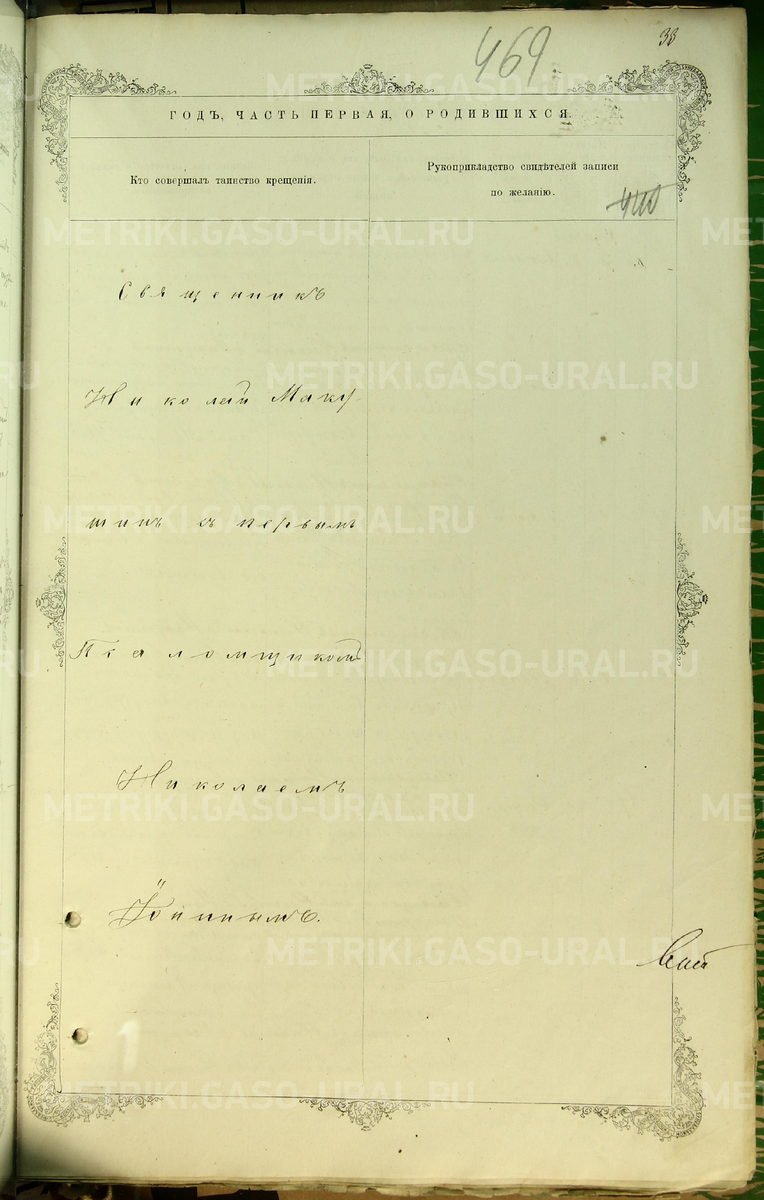 469
33
ГОДЪ, ЧАСТЬ ПЕРВАЯ, О РОДИВШИХСЯ.
Кто совершалъ таинство крещенія.
Рукоприкладство свидѣтелей записи
по желанію.
Священникъ
Николай Маку-
шинъ съ первымъ
Псаломщикомъ
Николаемъ
METRIKI.GASO-URAL.RU